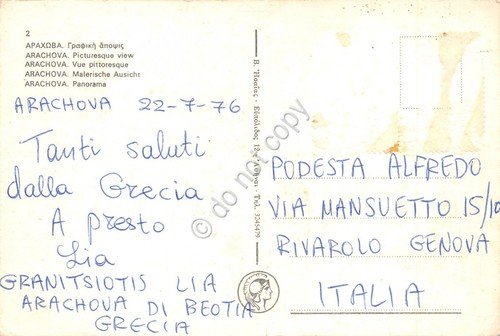 2
ΑΡΑΧΩΒΑ. Γραφική ἄποψις
ARACHOVA. Picturesque view
ARACHOVA. Vue pittoresque
ARACHOVA. Malerische Ausicht
ARACHOVA. Panorama
ARACHOVA 22-7-76
Tanti saluti
dalla Grecia
A presto
Lia
GRANITSIOTIS LIA
ARACHOVA DI BEOTIA
GRECIA
Εὐπόλιδος 12 Ἀθῆναι - Τηλ. 3245479
PODESTA ALFREDO
VIA MANSUETTO 15/10
RIVAROLO GENOVA
ITALIA
do not copy